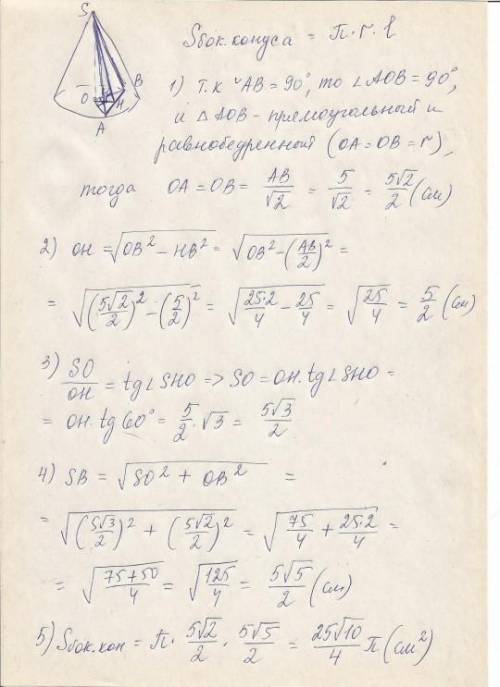 S
O
H
B
A
Sбок.конуса = П·r·l
1) Т.к ◡AB=90°, то ∠AOB=90°,
и △AOB-прямоугольный и
равнобедренный (OA=OB=r),
тогда OA=OB= AB/√2 = 5/√2 = 5√2/2 (см)
2) OH=√(OB²-HB²)=√(OB²-(AB/2)²)=
=√((5√2/2)²-(5/2)²)=√(25·2/4-25/4)=√(25/4)=5/2 (см)
3) SO/OH=tg∠SHO=>SO=OH·tg∠SHO=
=OH·tg60°=5/2·√3=5√3/2
4) SB=√(SO²+OB²)=
=√((5√3/2)²+(5√2/2)²)=√(75/4+25·2/4)=
=√((75+50)/4)=√(125/4)=5√5/2 (см)
5) Sбок.кон=П·5√2/2·5√5/2=25√10/4 П(см²)